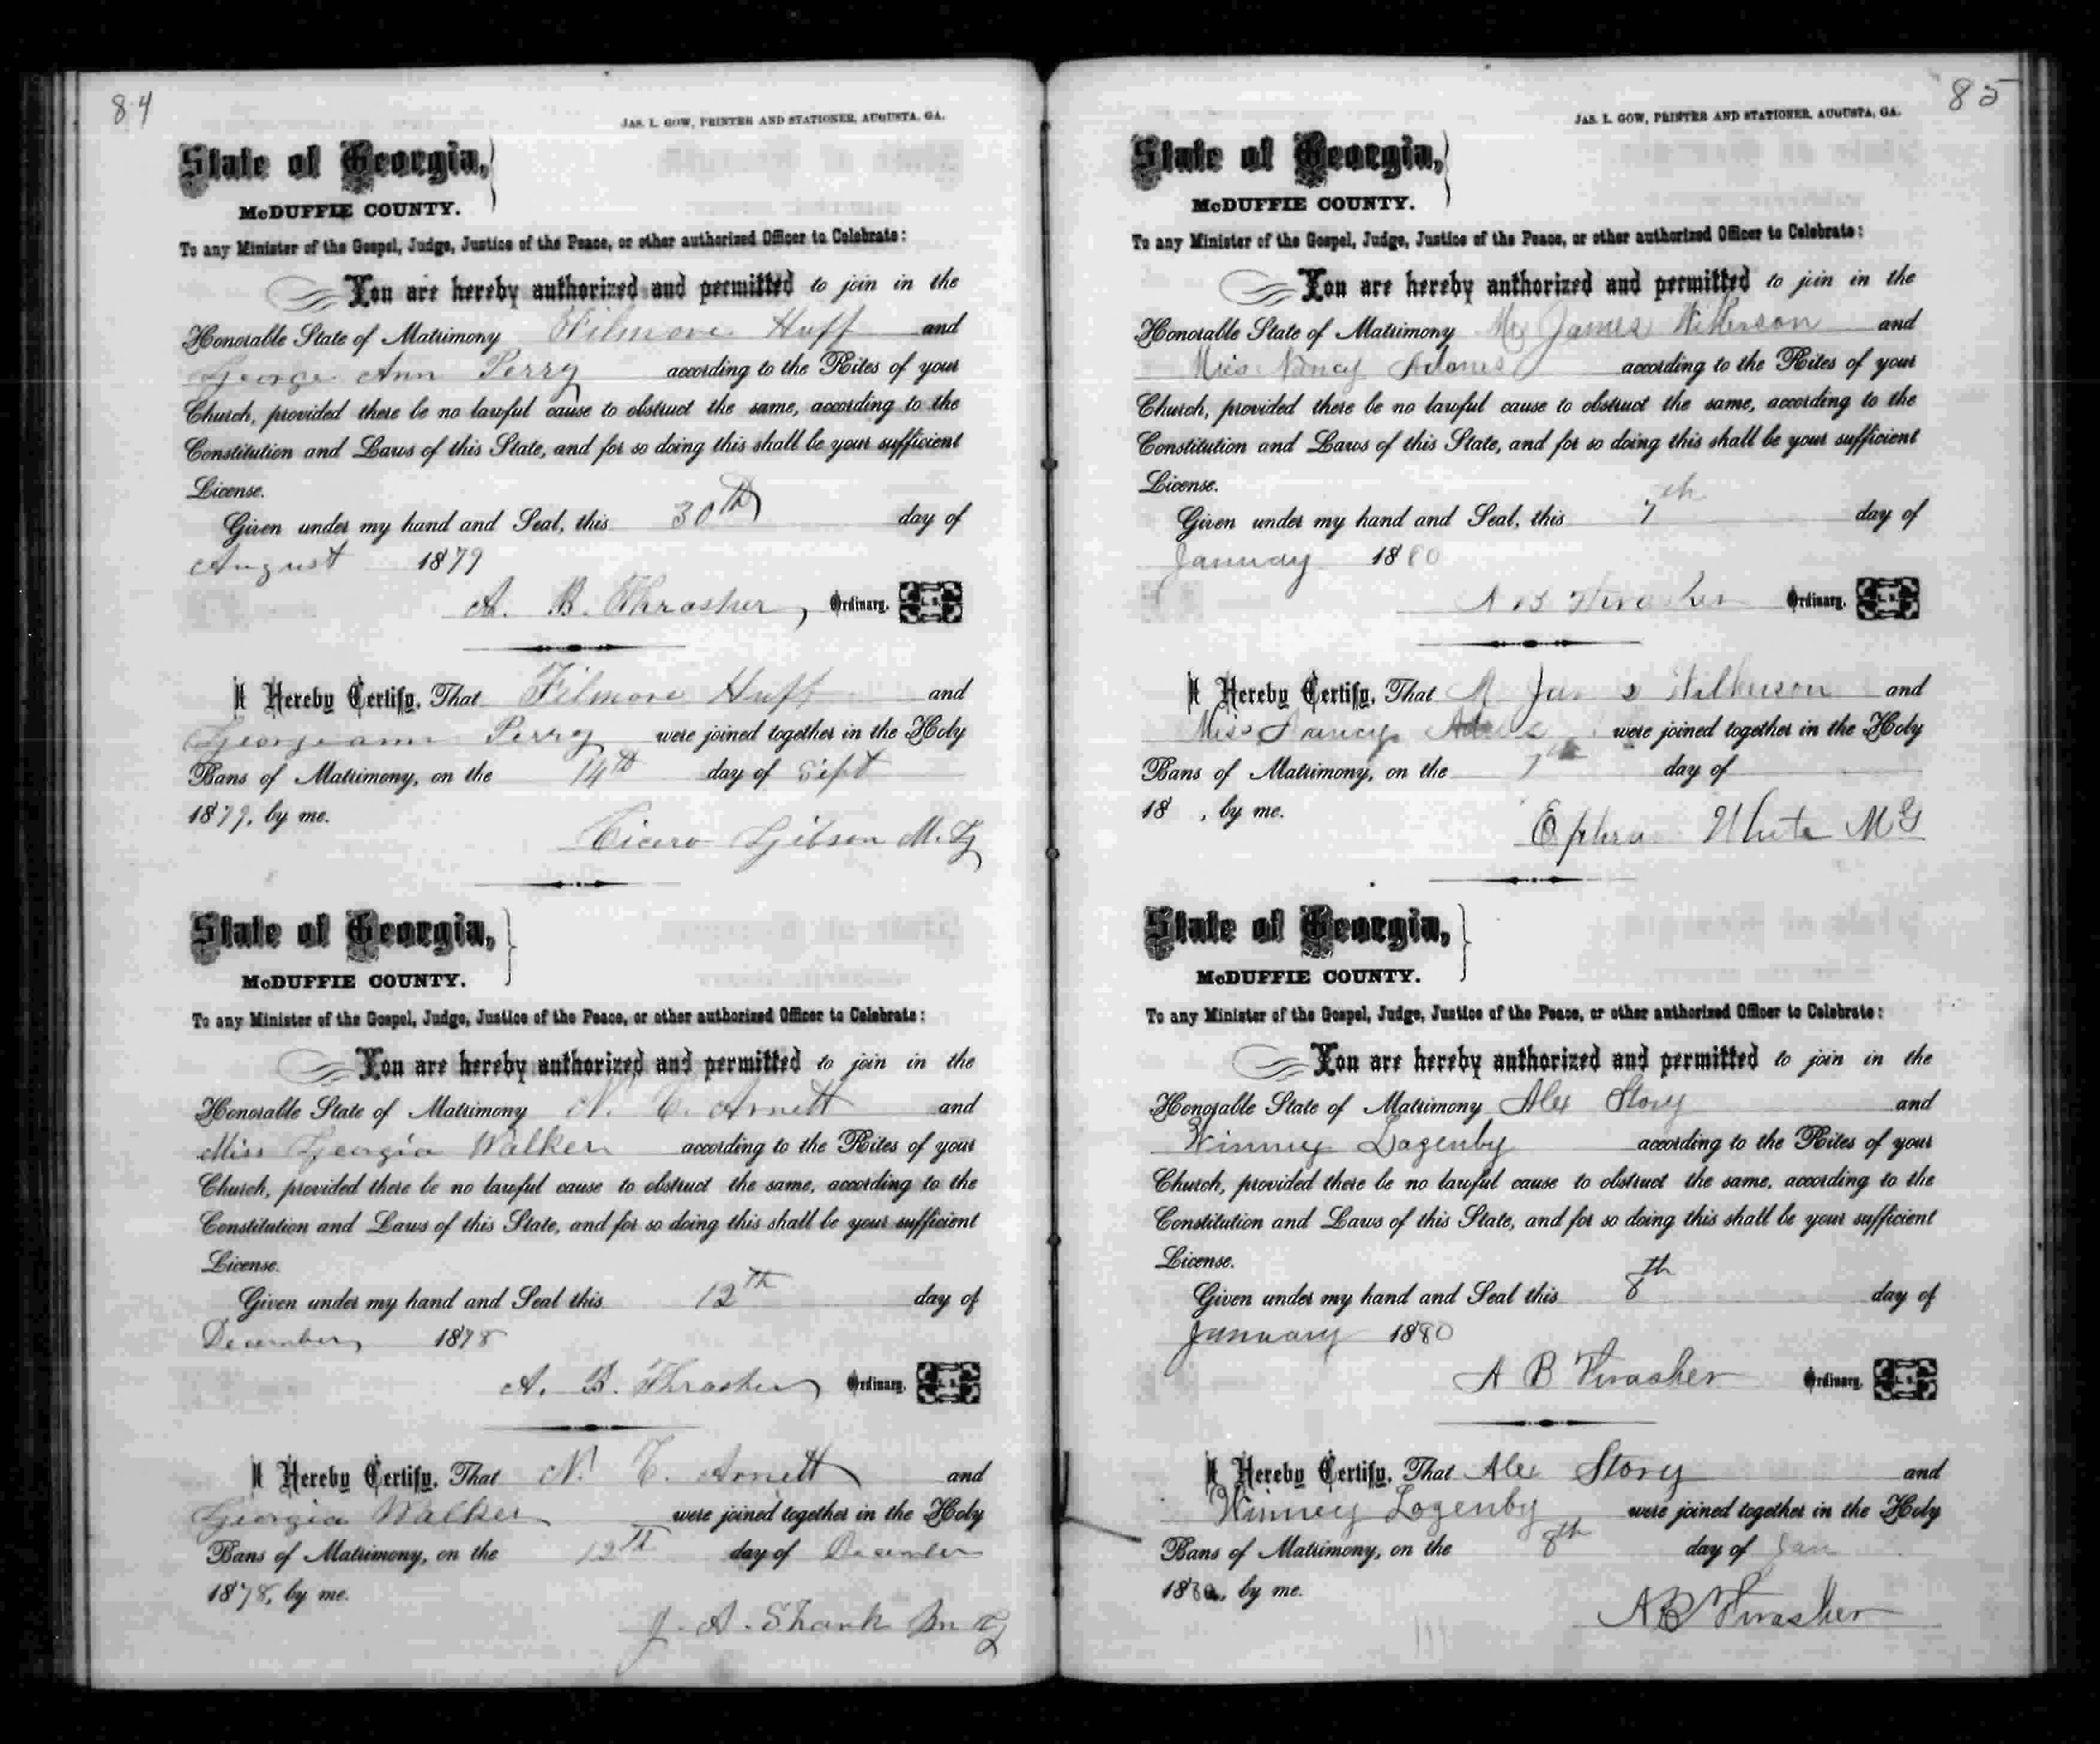 84
JAS. L. GOW, PRINTER AND STATIONER, AUGUSTA, GA.
State of Georgia,
McDUFFIE COUNTY.
To any Minister of the Gospel, Judge, Justice of the Peace, or other authorized Officer to Celebrate:
You are hereby authorized and permitted to join in the
Honorable State of Matrimony Filmore Huff and
George Ann Perry according to the Rites of your
Church, provided there be no lawful cause to obstruct the same, according to the
Constitution and Laws of this State, and for so doing this shall be your sufficient
License.
Given under my hand and Seal, this 30th day of
August 1879
A. B. Thrasher, Ordinary. L. S.
I Hereby Certify, That Filmore Huff and
Georgeann Perry were joined together in the Holy
Bans of Matrimony, on the 14th day of Sept
1879, by me.
Cicero Gibson M. G
State of Georgia,
McDUFFIE COUNTY.
To any Minister of the Gospel, Judge, Justice of the Peace, or other authorized Officer to Celebrate:
You are hereby authorized and permitted to join in the
Honorable State of Matrimony N. T. Arnett and
Miss Georgia Walker according to the Rites of your
Church, provided there be no lawful cause to obstruct the same, according to the
Constitution and Laws of this State, and for so doing this shall be your sufficient
License.
Given under my hand and Seal this 12th day of
December 1878
A. B. Thrasher Ordinary. L. S.
I Hereby Certify, That N. T. Arnett and
Georgia Walker were joined together in the Holy
Bans of Matrimony, on the 12th day of December
1878, by me.
J. A. Shank M G
85
JAS. L. GOW, PRINTER AND STATIONER, AUGUSTA, GA.
State of Georgia,
McDUFFIE COUNTY.
To any Minister of the Gospel, Judge, Justice of the Peace, or other authorized Officer to Celebrate:
You are hereby authorized and permitted to join in the
Honorable State of Matrimony Mr James Wilkerson and
Miss Nancy Adams according to the Rites of your
Church, provided there be no lawful cause to obstruct the same, according to the
Constitution and Laws of this State, and for so doing this shall be your sufficient
License.
Given under my hand and Seal, this 7th day of
January 1880
A B Thrasher Ordinary. L. S.
I Hereby Certify, That M James Wilkerson and
Miss Nancy Adams were joined together in the Holy
Bans of Matrimony, on the 7th day of
18 , by me.
White MG
State of Georgia,
McDUFFIE COUNTY.
To any Minister of the Gospel, Judge, Justice of the Peace, or other authorized Officer to Celebrate:
You are hereby authorized and permitted to join in the
Honorable State of Matrimony Alex Story and
Winney Lazenby according to the Rites of your
Church, provided there be no lawful cause to obstruct the same, according to the
Constitution and Laws of this State, and for so doing this shall be your sufficient
License.
Given under my hand and Seal this 8th day of
January 1880
A B Thrasher Ordinary. L. S.
I Hereby Certify, That Alex Story and
Winney Lozenby were joined together in the Holy
Bans of Matrimony, on the 8th day of Jan
1880, by me.
A B Thrasher